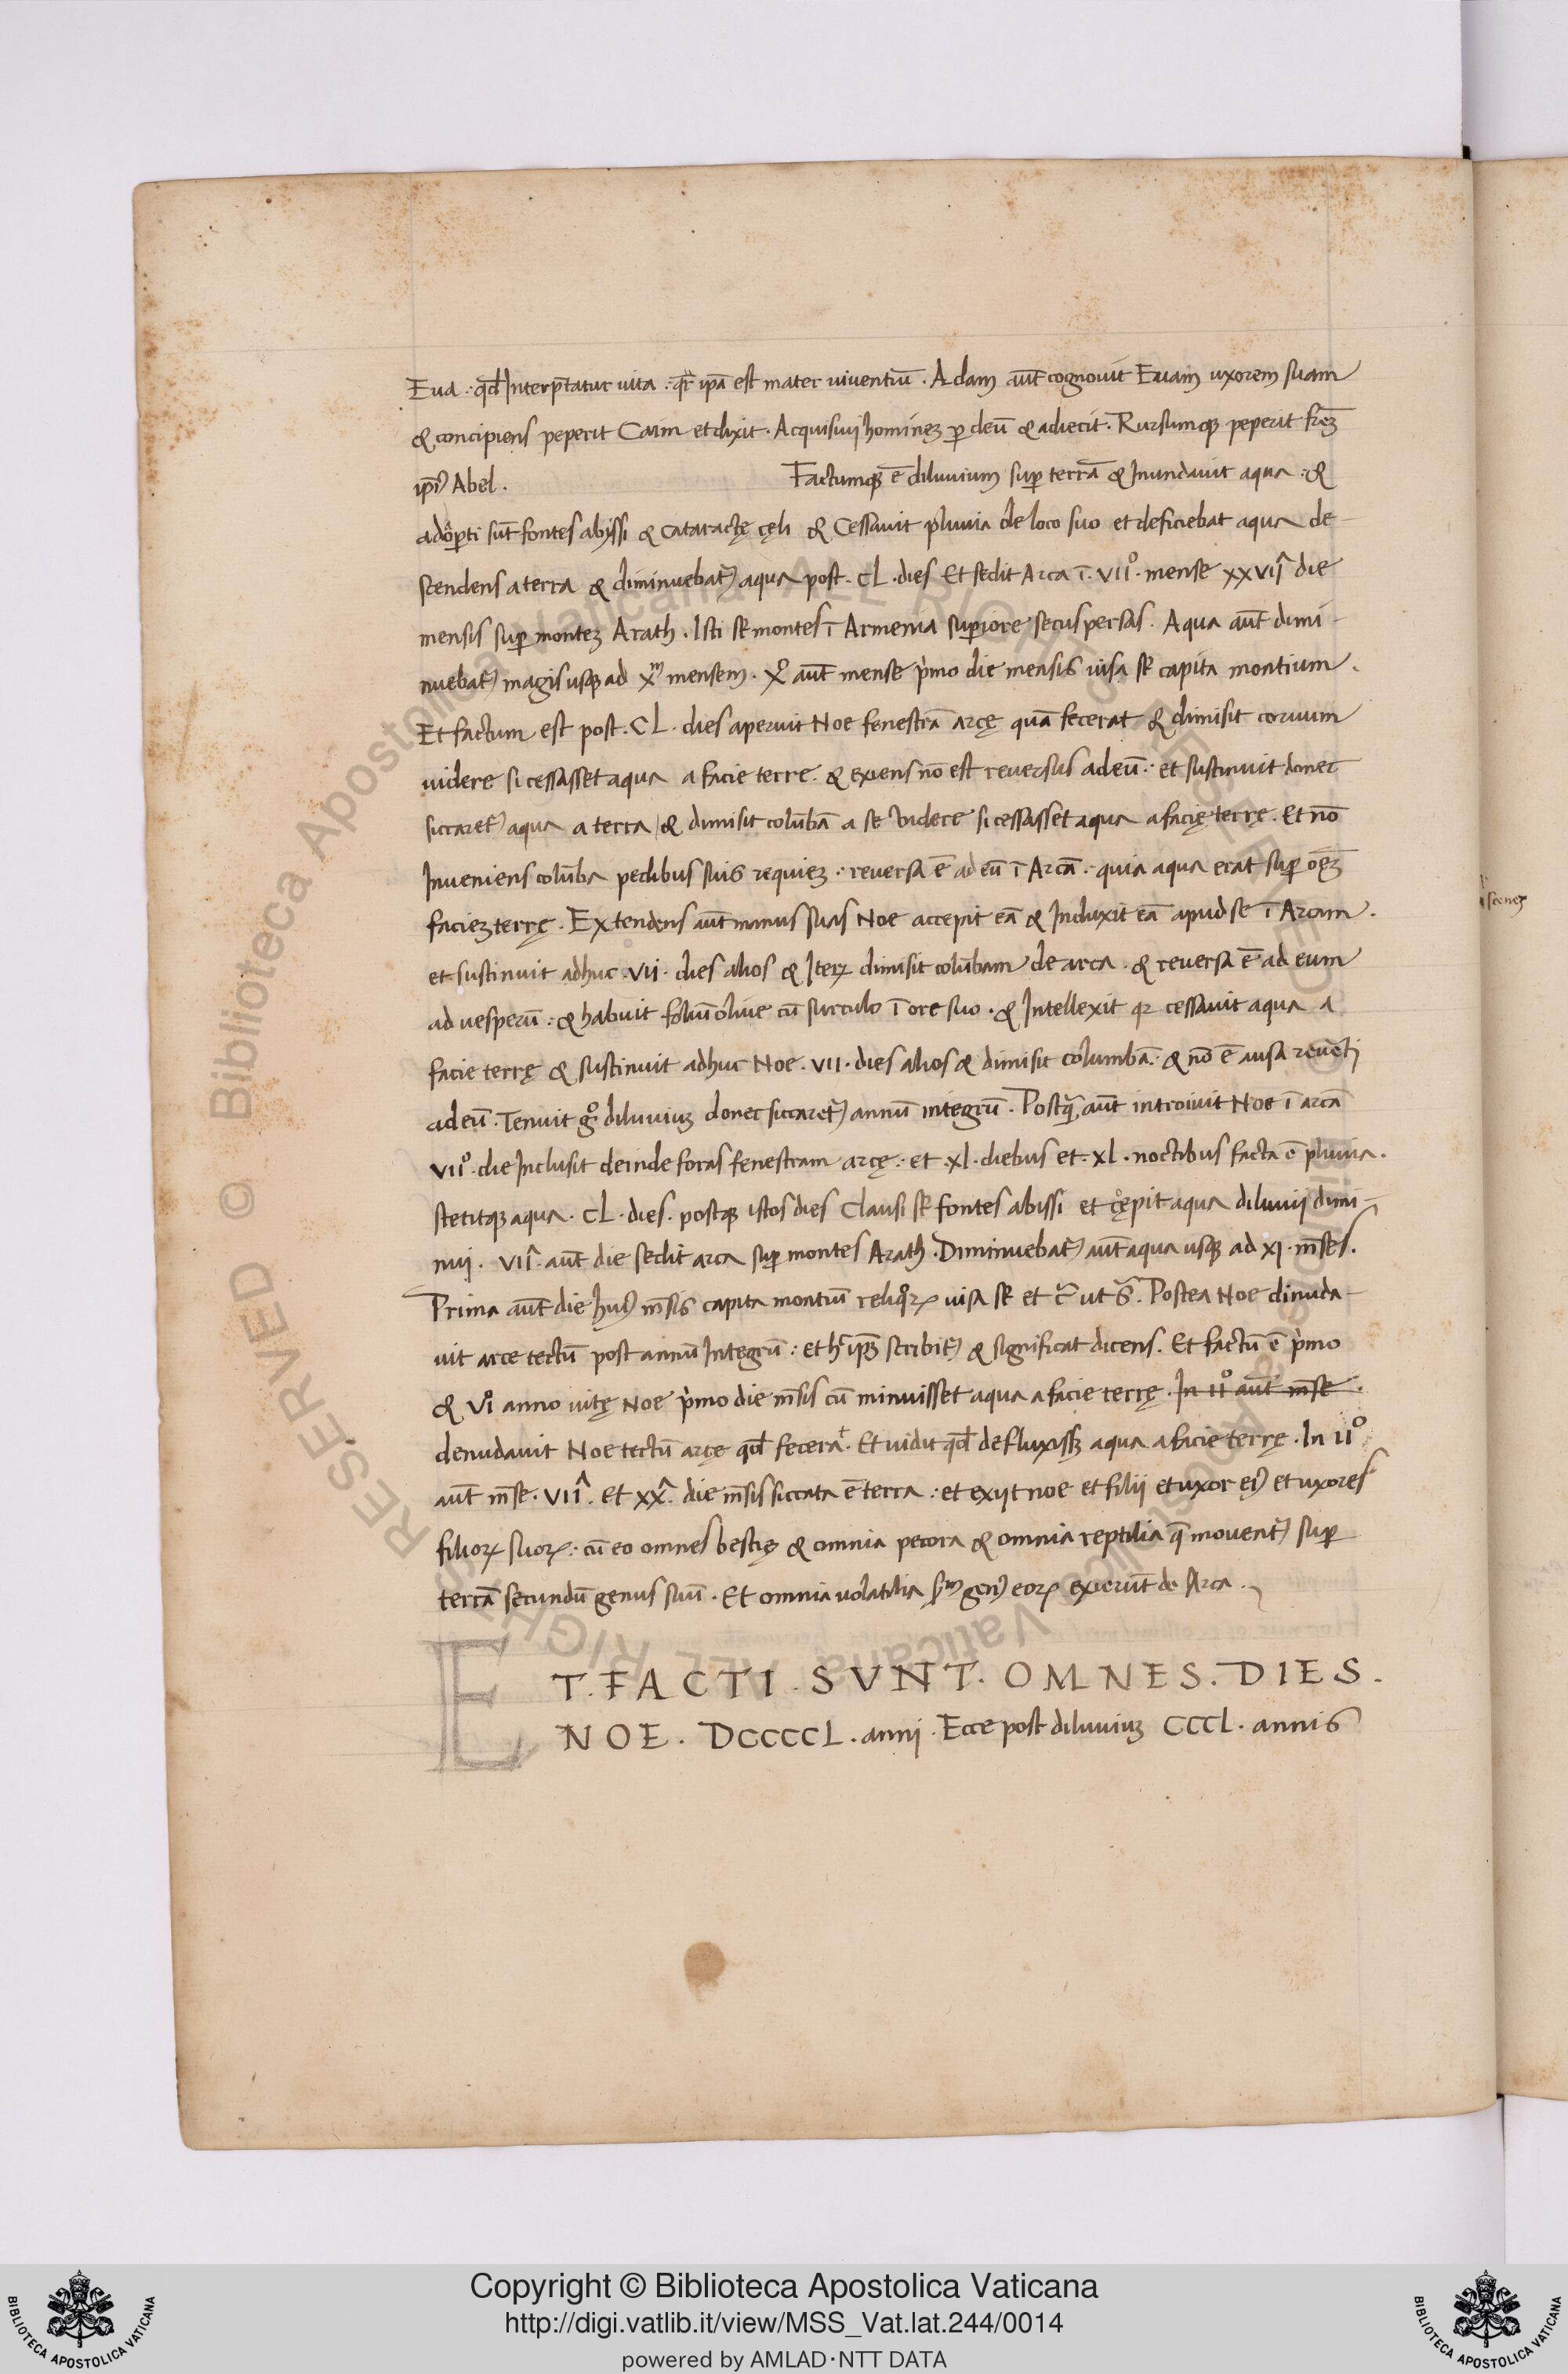 Eua : qđ Interp̄tatur uita : qr̄ ip̄a est mater uiuentiū . Adam aūt cognouit Euam uxorem suam
& concipiens peperit Caim et dixit . Acquisiui hominēꝫ ꝑ deū & adiecit . Rursumqꝫ peperit fr̄eꝫ
ip̄i᾽ Abel . Factumqꝫ ē diluuium suꝑ terrā & Inundauit aqua : &
adoꝑti sūt fontes abyssi & cataractę cęli & Cessauit pluuia de loco suo et deficiebat aqua de-
scendens a terra & diminuebat᾽ aqua post . CL . dies Et sedit Arca ī . VIIº . mense xxvijª die
mensis suꝑ monteꝫ Arath . Isti st̄ montes ī Armenia suꝑiore secus persas . Aqua aūt dimi-
nuebat᾽ magis usqꝫ ad Xᵐ mensem . Xº aūt mense p̍mo die mensis uisa st̄ capita montium .
Et factum est post . CL . dies aperuit Noe fenestrā arcę quā fecerat & dimisit coruum
uidere si cessasset aqua a facie terre . & exiens nō est reuersus ad eū : et sustinuit donec
siccaret᾽ aqua a terra / & dimisit colūbā a se uidere si cessasset aqua a facię terrę . Et nō
Inueniens colūba pedibus suis requieꝫ : reuersa ē ad eū ī Arcā : quia aqua erat suꝑ oēꝫ
facieꝫ terrę . Extendens aūt manus suas Noe accepit eā & Induxit eā apud se ī Arcam .
et sustinuit adhuc . VII . dies alios & Iteꝝ dimisit colūbam de arca . & reuersa ē ad eum
ad uesperū : & habuit foliū oliue cū surculo ī ore suo . & Intellexit qꝛ cessauit aqua a
facie terrę & sustinuit adhuc Noe . VII . dies alios & dimisit columbā : & nō ē ausa reuerti
ad eū . Tenuit gº diluuiuꝫ donec siccaret᾽ annū integrū . Postq̄ aūt introiuit Noe ī arcā
VIIº . die Inclusit deinde foras fenestram arcę : et . xl . diebus et . xl . noctibus facta ē pluuia .
stetitqꝫ aqua . CL . dies . postqꝫ istos dies Clausi st̄ fontes abissi et cępit aqua diluuij dimi-
nuj . VIIª . aūt die sedit arca suꝑ montes Arath . Diminuebat᾽ aūt aqua usqꝫ ad XI . mēses .
Prima aūt die hui᾽ mēsis capita montiū reliqºꝝ uisa st̄ et c̄ ut s̄ . Postea Noe dinuda-
uit arce tectū post annū Integrū : et h̄ ip̄ꝫ scribit᾽ & significat dicens . Et factū ē p̍mo
& VIº anno uitę Noe p̍mo die mēsis cū minuisset aqua a facie terrę . In IIº aūt mēse .
denudauit Noe tectū arcę qđ fecerat . Et uidit qđ defluxissꝫ aqua a facie terrę . In IIº
aūt mēse . VIIª . et XXª . die mēsis siccata ē terra : et exijt noe et filii et uxor ei᾽ et uxores
filioꝝ suoꝝ : cū eo omnes bestię & omnia pecora & omnia reptilia q̄ mouent᾽ suꝑ
terrā secundū genus suū . Et omnia uolatilia sᵐ gen᾽ eoꝝ exierūt de Arca .
ET . FACTI . SVNT . OMNES . DIES .
NOE . DCCCCL . anni . Ecce post diluuiuꝫ CCCL . annis
Copyright © Biblioteca Apostolica Vaticana
http://digi.vatlib.it/view/MSS_Vat.lat.244/0014
powered by AMLAD·NTT DATA
BIBLIOTECA APOSTOLICA VATICANA
BIBLIOTECA APOSTOLICA VATICANA
© Biblioteca Apostolica Vaticana ALL RIGHTS RESERVED